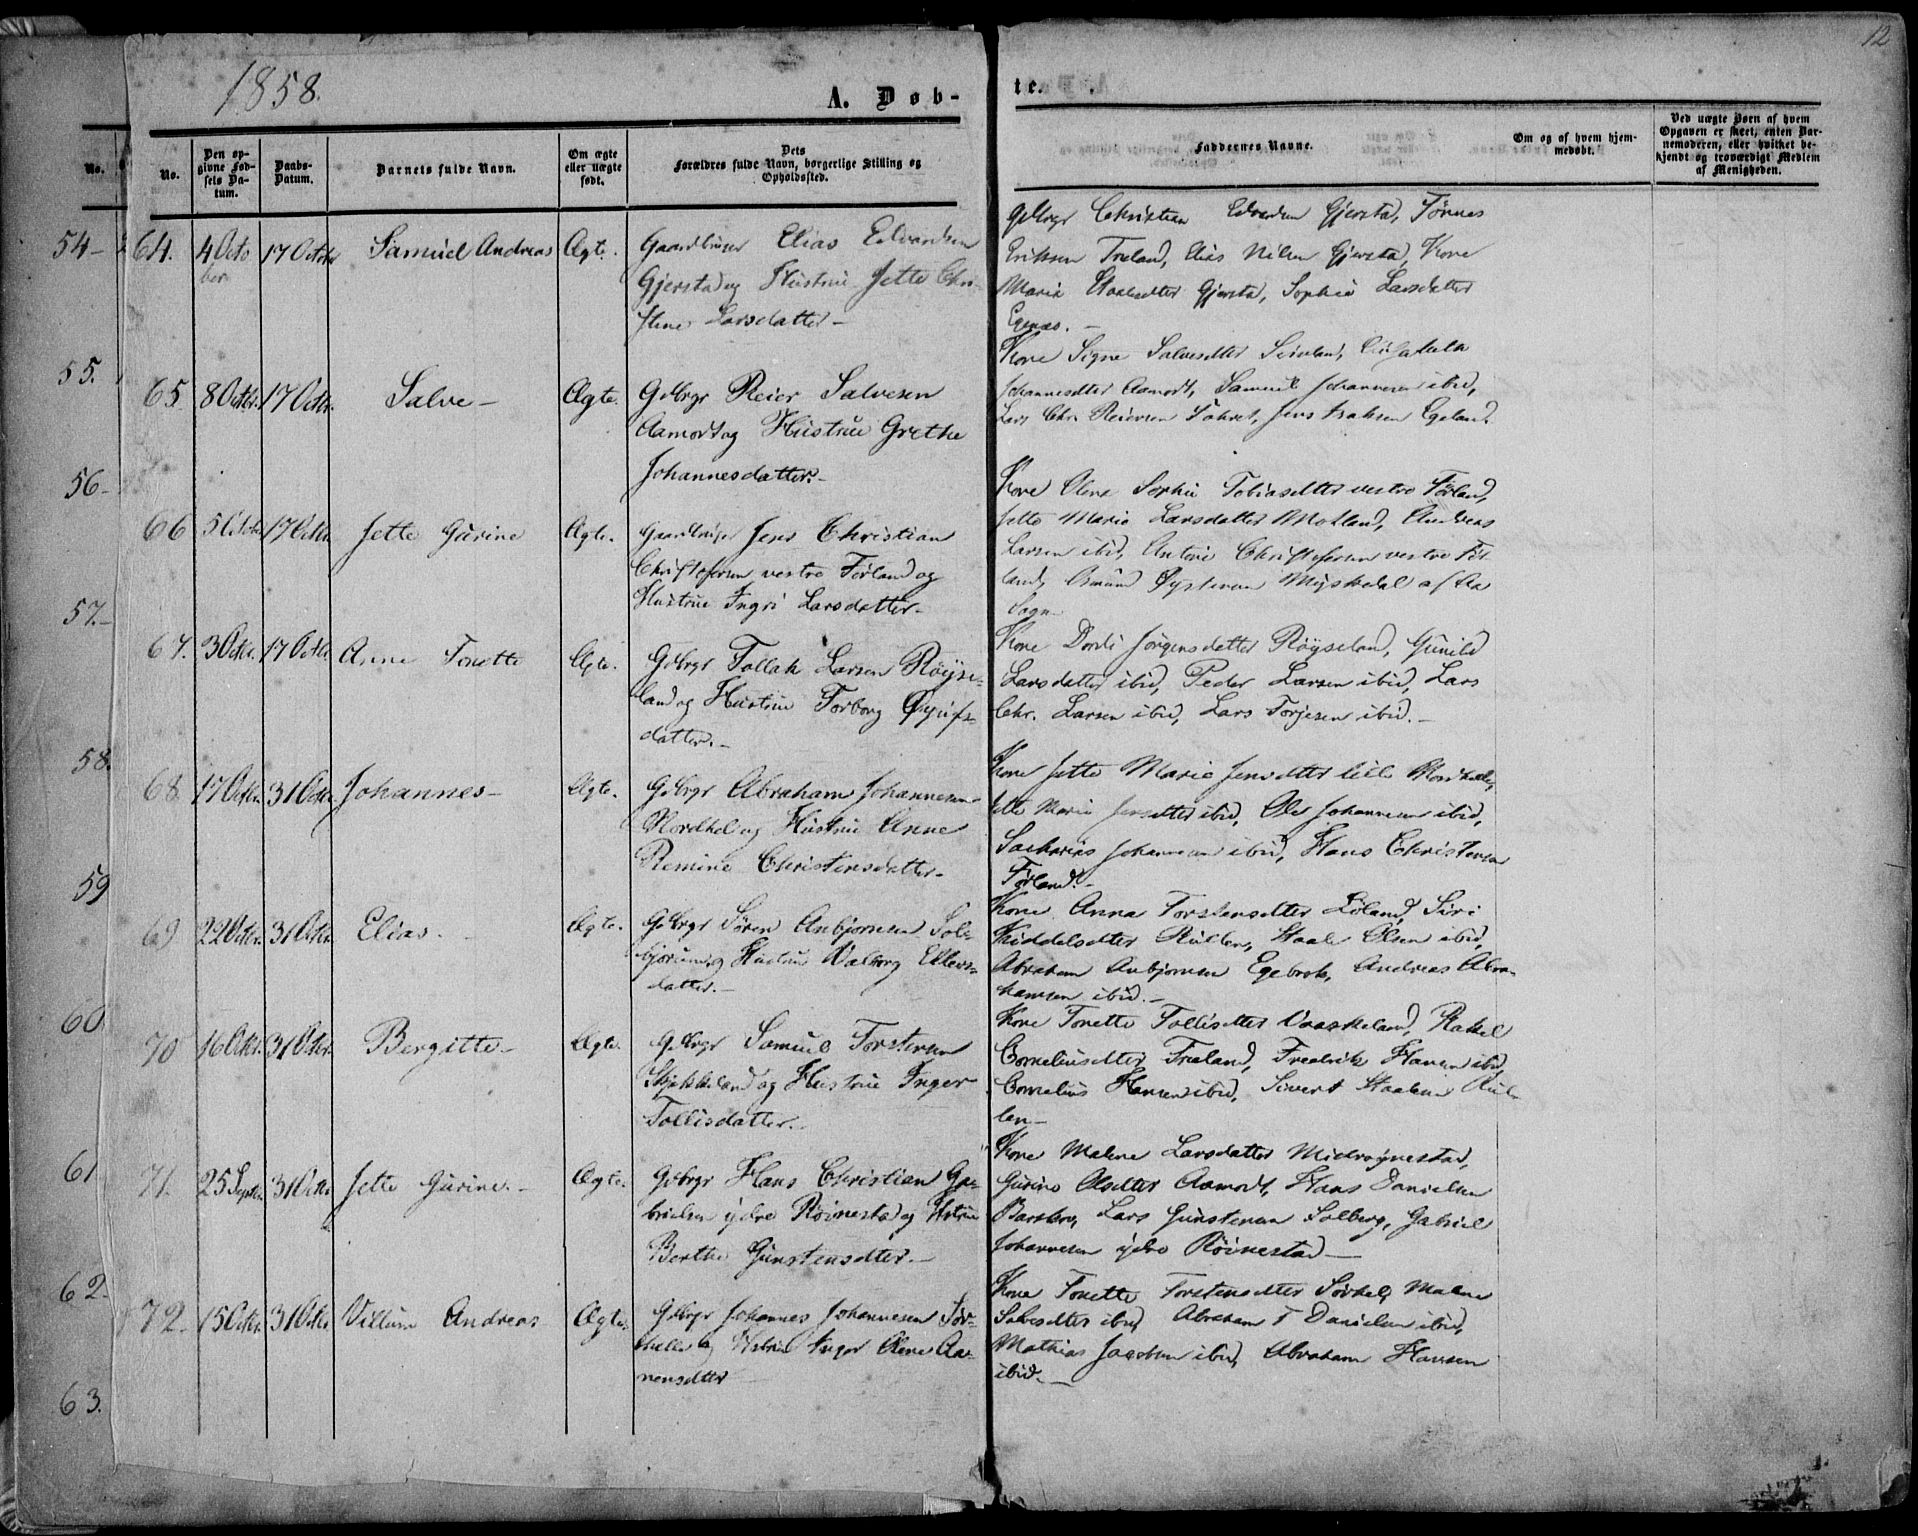 12
1858.
A. Døb-
te.
No.
No.
Den op-
givne Fød-
sels Da-
tum.
Daabs-
Datum.
Barnets fulde Navn.
Om ægte
eller uægte
født.
Dets
Forældres fulde Navn, borgerlige Stilling og
Opholdssted.
Faddernes Navne.
Om og af hvem hjem-
medøbt.
Ved uægte Børn af hvem
Opgaven er skeet, enten Bar-
nemoderen, eller hvilket be-
kjendt og troværdigt Medlem
af Menigheden.
54-
55.
56-
57.-
58.
59
60
61
62-
63.
64.
4 Octo
ber
17 Octbr
Samuel Andreas
Ægte.
Gaardbruger Elias Edvardsen
Gjerstad og Hustrue Jette Chri-
stine Larsdatter-
Gdbrgr Christian Edvardsen Gjersta, Tønnes
Eriksen Treland, Elias Nilsen Gjersta, Kone
Maria Staalesdtter Gjersta, Sophie Larsdatter
Egenæs.-
65
8 Octbr.
17 Octbr.
Salve-
Ægte.
Gdbrgr Reier Salvesen
Aamodt og Hustrue Grethe
Johannesdatter.-
Kone Signe Salvesdtter
Johannesdtter Aamodt, Samuel Johannesen ibid,
Lars Chr. Reiersen Jens Isaksen Egeland.
66
5 Octbr
17 Octbr.
Jette Gurine
Ægte.
Gaardbruger Jens Christian
Christofersen vestre Førland og
Hustrue Ingri Larsdatter-
Kone Olene Sophie Tobiasdtter vestre Førland,
Jette Marie Larsdatter Motland, Andreas
Larsen ibid, Antoni Christofersen vestre Før-
land, Osmund Øystensen af Aa
Sogn-
67.
3 Octbr.
17 Octbr
Anne Tonette
Ægte.
Gdbrgr Tollak Larsen Røyse-
land og Hustrue Torborg
datter.-
Kone Dordi Jørgensdatter Røyseland, Gunild
Larsdatter ibid, Peder Larsen ibid, Lars
Chr. Larsen ibid, Lars Torjesen ibid.-
68
17 Octbr.
31 Octbr
Johannes-
Ægte.
Gdbrgr Abraham Johannesen
Nordhel og Hustrue Anne
Remine Christensdatter-
Kone Jette Marie Jensdtter lille
Jette Marie Jensdtter ibid, Ole Johannesen ibid,
Sacharias Johannesen ibid, Hans Christensen
Førland.-
69
22 Octbr.
31 Octbr.
Elias.
Ægte.
Gdbrgr Søren Anbjørnsen Sole-
og Hustrue Valborg Ellevs-
datter.-
Kone Anna Torstensdtter Løland, Siri
Kiddelsdtter Rullen, Staale Olsen ibid,
Abraham Anbjørnsen Egebrok, Andreas Abra-
hamsen ibid.-
70
16 Octbr.
31 Octbr.
Bergitte-
Ægte.
Gdbrgr Samuel Torstensen
Skjekkeland og Hustrue Inger
Tollisdatter.-
Kone Tonette Tollisdtter Vaaskeland, Rakel
Corneliusdtter Treland, Fredrik Hansen ibid,
Cornelius Hansen ibid, Sivert Staalesen Rul-
len-
71.
25 Septbr.
31 Octbr
Jette Gurine.-
Ægte.
Gdbrgr Hans Christian Ga-
brielsen ydre Røinestad og Hstrue
Berthe Gunstensdtter.-
Kone Malene Larsdatter Midrøynestad,
Gurine Olsdtter Aamodt, Hans Danielsen
Lars Gunstensen Solberg, Gabriel
Johannesen ydre Røinestad-
72.
15 Octbr.
31 Octbr
Villum Andreas
Ægte.
Gdbrgr Johannes Johannesen Sør-
helle og Hstrue Inger Olene Aa-
nensdtter
Kone Tonette Torstensdtter Sørhel, Malene
Salvesdtter ibid, Abraham T Danielsen ibid,
Mathias Jacobsen ibid, Abraham Hansen
ibid.-